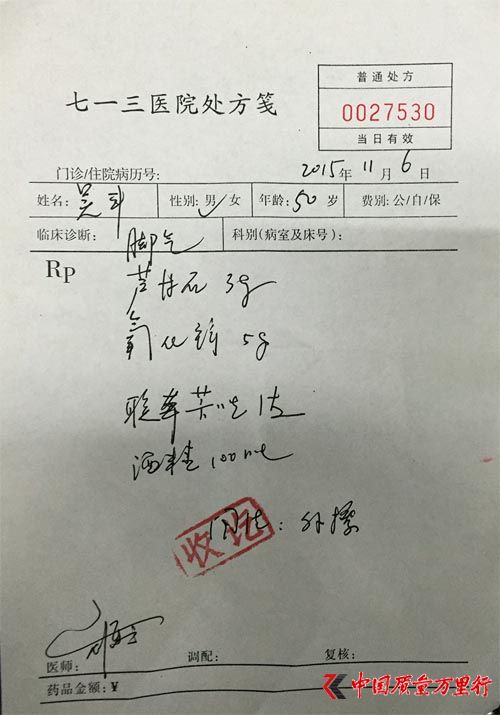 七一三医院处方笺
普通处方
0027530
当日有效
门诊/住院病历号: 2015年11月6日
姓名: 性别: 男/女 年龄: 50岁 费别: 公/自/保
临床诊断: 脚气 科别(病室及床号):
Rp
芦甘石 3g
氧化锌 5g
联苯苄唑 1支
酒精 100ml
用法: 外擦
收讫
医师: 调配: 复核:
药品金额: ¥
中国质量万里行